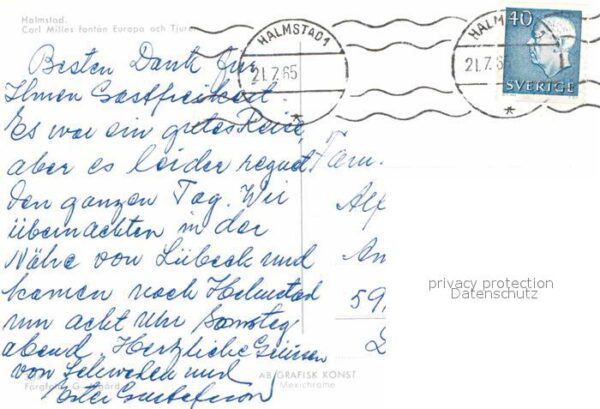 Halmstad.
Carl Milles fontän Europa och Tjuren
HALMSTAD 1
21.7.65
HALM
21.7.65
40
SVERIGE
Besten Dank für
Ihnen Gastfreiheit.
Es war ein gutes Reise,
aber es leider regnet
den ganzen Tag. Wir
übernachten in der
Nähe von Lübeck und
kamen nach Halmstad
um acht Uhr Samstag
abend. Herzliche Grüssen
von Schweden und
Gustafsson
Fam.
Alf
An
59
privacy protection
Datenschutz
AB GRAFISK KONST
Mexichrome